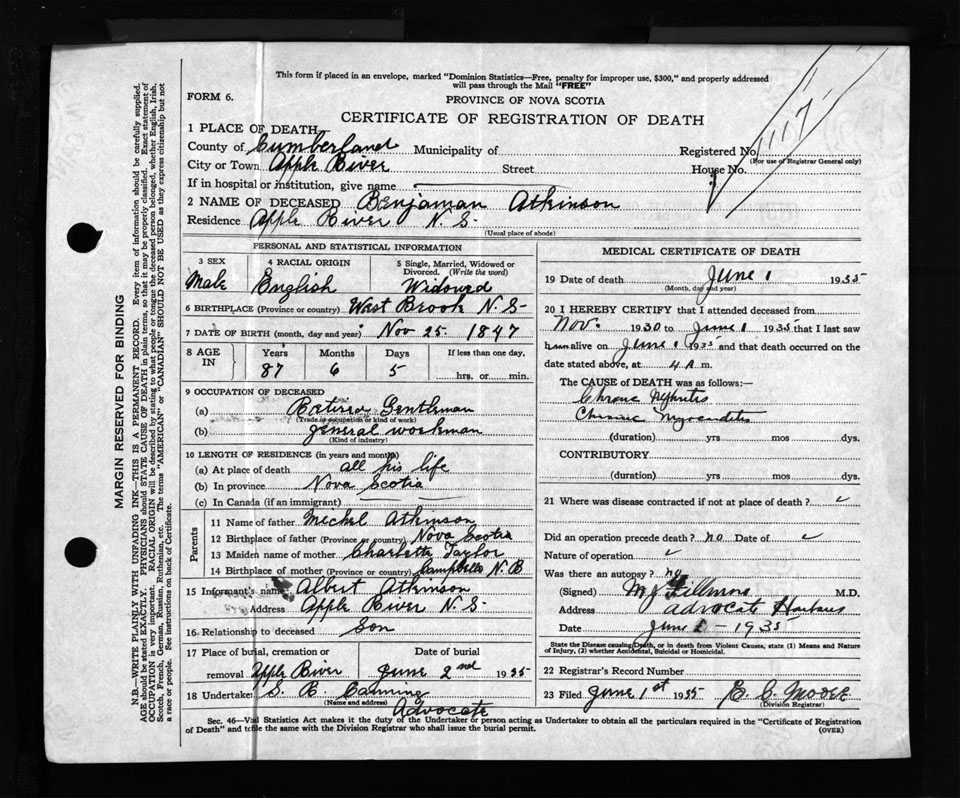 This form if placed in an envelope, marked "Dominion Statistics—Free, penalty for improper use, $300," and properly addressed
will pass through the Mail "FREE"
FORM 6.
PROVINCE OF NOVA SCOTIA
CERTIFICATE OF REGISTRATION OF DEATH
117
1 PLACE OF DEATH
County of Cumberland Municipality of Registered No.
(For use of Registrar General only)
City or Town Apple River Street House No.
If in hospital or institution, give name
2 NAME OF DECEASED Benjaman Atkinson
Residence Apple River N.S.
(Usual place of abode)
PERSONAL AND STATISTICAL INFORMATION
3 SEX 4 RACIAL ORIGIN 5 Single, Married, Widowed or
Divorced. (Write the word)
Male English Widowed
6 BIRTHPLACE (Province or country) West Brook N.S.
7 DATE OF BIRTH (month, day and year) Nov 25. 1847
8 AGE IN Years Months Days If less than one day,
87 6 5 hrs. or min.
9 OCCUPATION OF DECEASED
(a) Retired Gentleman
(Trade, occupation or kind of work)
(b) general workman
(Kind of industry)
10 LENGTH OF RESIDENCE (in years and months)
(a) At place of death all his life
(b) In province Nova Scotia
(c) In Canada (if an immigrant)
Parents
11 Name of father Mechel Atkinson
12 Birthplace of father (Province or country) Nova Scotia
13 Maiden name of mother Charlette Taylor
14 Birthplace of mother (Province or country) Campbello N.B
15 Informant's name Albert Atkinson
Address Apple River N.S.
16 Relationship to deceased Son
17 Place of burial, cremation or Date of burial
removal Apple River June 2nd 1935
18 Undertaker S. B. Canning
(Name and address)
Advocate
MEDICAL CERTIFICATE OF DEATH
19 Date of death June 1 1935
(Month, day and year)
20 I HEREBY CERTIFY that I attended deceased from
Nov. 1930 to June 1 1935 that I last saw
him alive on June 1 1935 and that death occurred on the
date stated above, at 4 A m.
The CAUSE of DEATH was as follows:—
Chronic Nephritis
Chronic Myocarditis
(duration) yrs mos dys.
CONTRIBUTORY
(duration) yrs mos dys.
21 Where was disease contracted if not at place of death?
Did an operation precede death? no Date of
Nature of operation
Was there an autopsy? no
(Signed) M J Fillmore M.D.
Address Advocate Harbour
Date June 1 - 1935
State the Disease causing Death, or in death from Violent Causes, state (1) Means and Nature
of Injury, (2) whether Accidental, Suicidal or Homicidal.
22 Registrar's Record Number
23 Filed June 1st 1935 E. C. Moore
(Division Registrar)
Sec. 46—Vital Statistics Act makes it the duty of the Undertaker or person acting as Undertaker to obtain all the particulars required in the "Certificate of Registration
of Death" and to file the same with the Division Registrar who shall issue the burial permit.
(OVER)
MARGIN RESERVED FOR BINDING
N.B.—WRITE PLAINLY WITH UNFADING INK—THIS IS A PERMANENT RECORD. Every item of information should be carefully supplied.
AGE should be stated EXACTLY. PHYSICIANS should STATE CAUSE OF DEATH in plain terms, so that it may be properly classified. Exact statement of
OCCUPATION is very important. RACIAL ORIGIN will be described by stating to what people or tongue the deceased person belonged, whether English, Irish,
Scotch, French, German, Russian, Ruthenian, etc. The terms "AMERICAN" or "CANADIAN" SHOULD NOT BE USED as they express citizenship but not
a race or people. See instructions on back of Certificate.